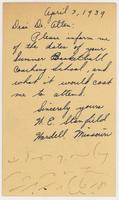 April 3, 1939
Dear Dr. Allen:
Please inform me
of the dates of your
Summer Basketball
Coaching School, and
what it would cost
me to attend.
Sincerely yours
W. E. Stanfield
Wardell, Missouri